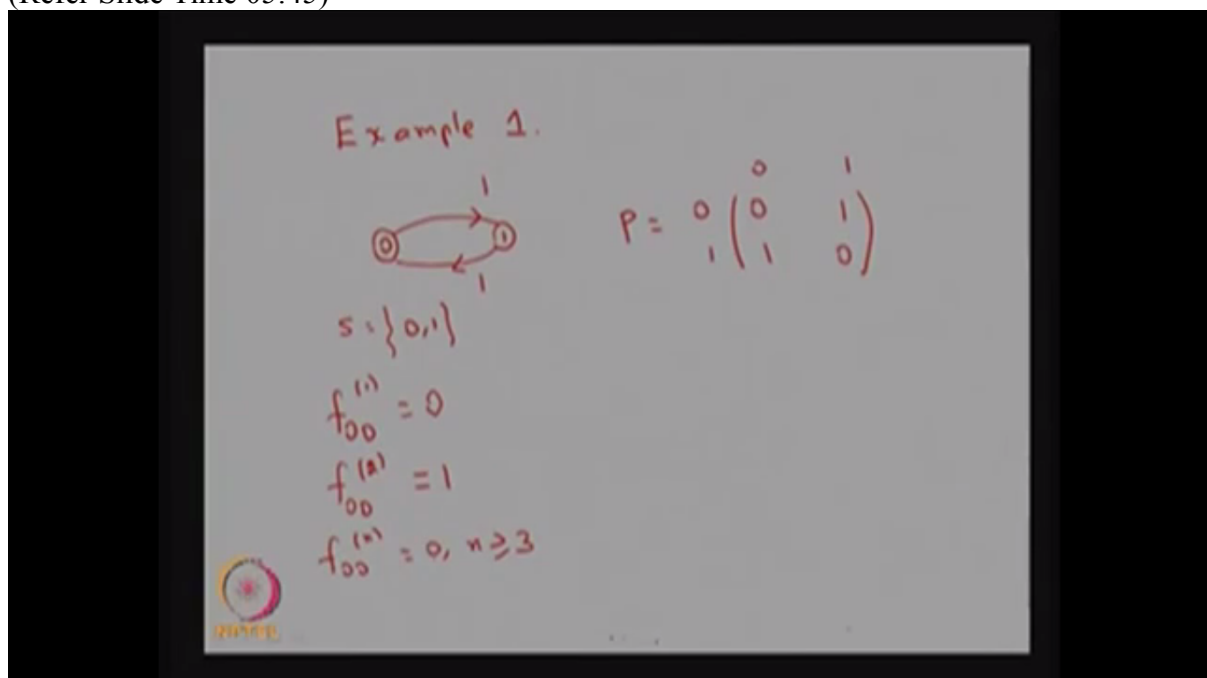 (Refer Slide Time 05:45)
Example 1.
1
0 1
1
P = 0 ( 0 1 )
1 ( 1 0 )
0 1
S = {0,1}
f00^(1) = 0
f00^(2) = 1
f00^(n) = 0, n ≥ 3
NPTEL